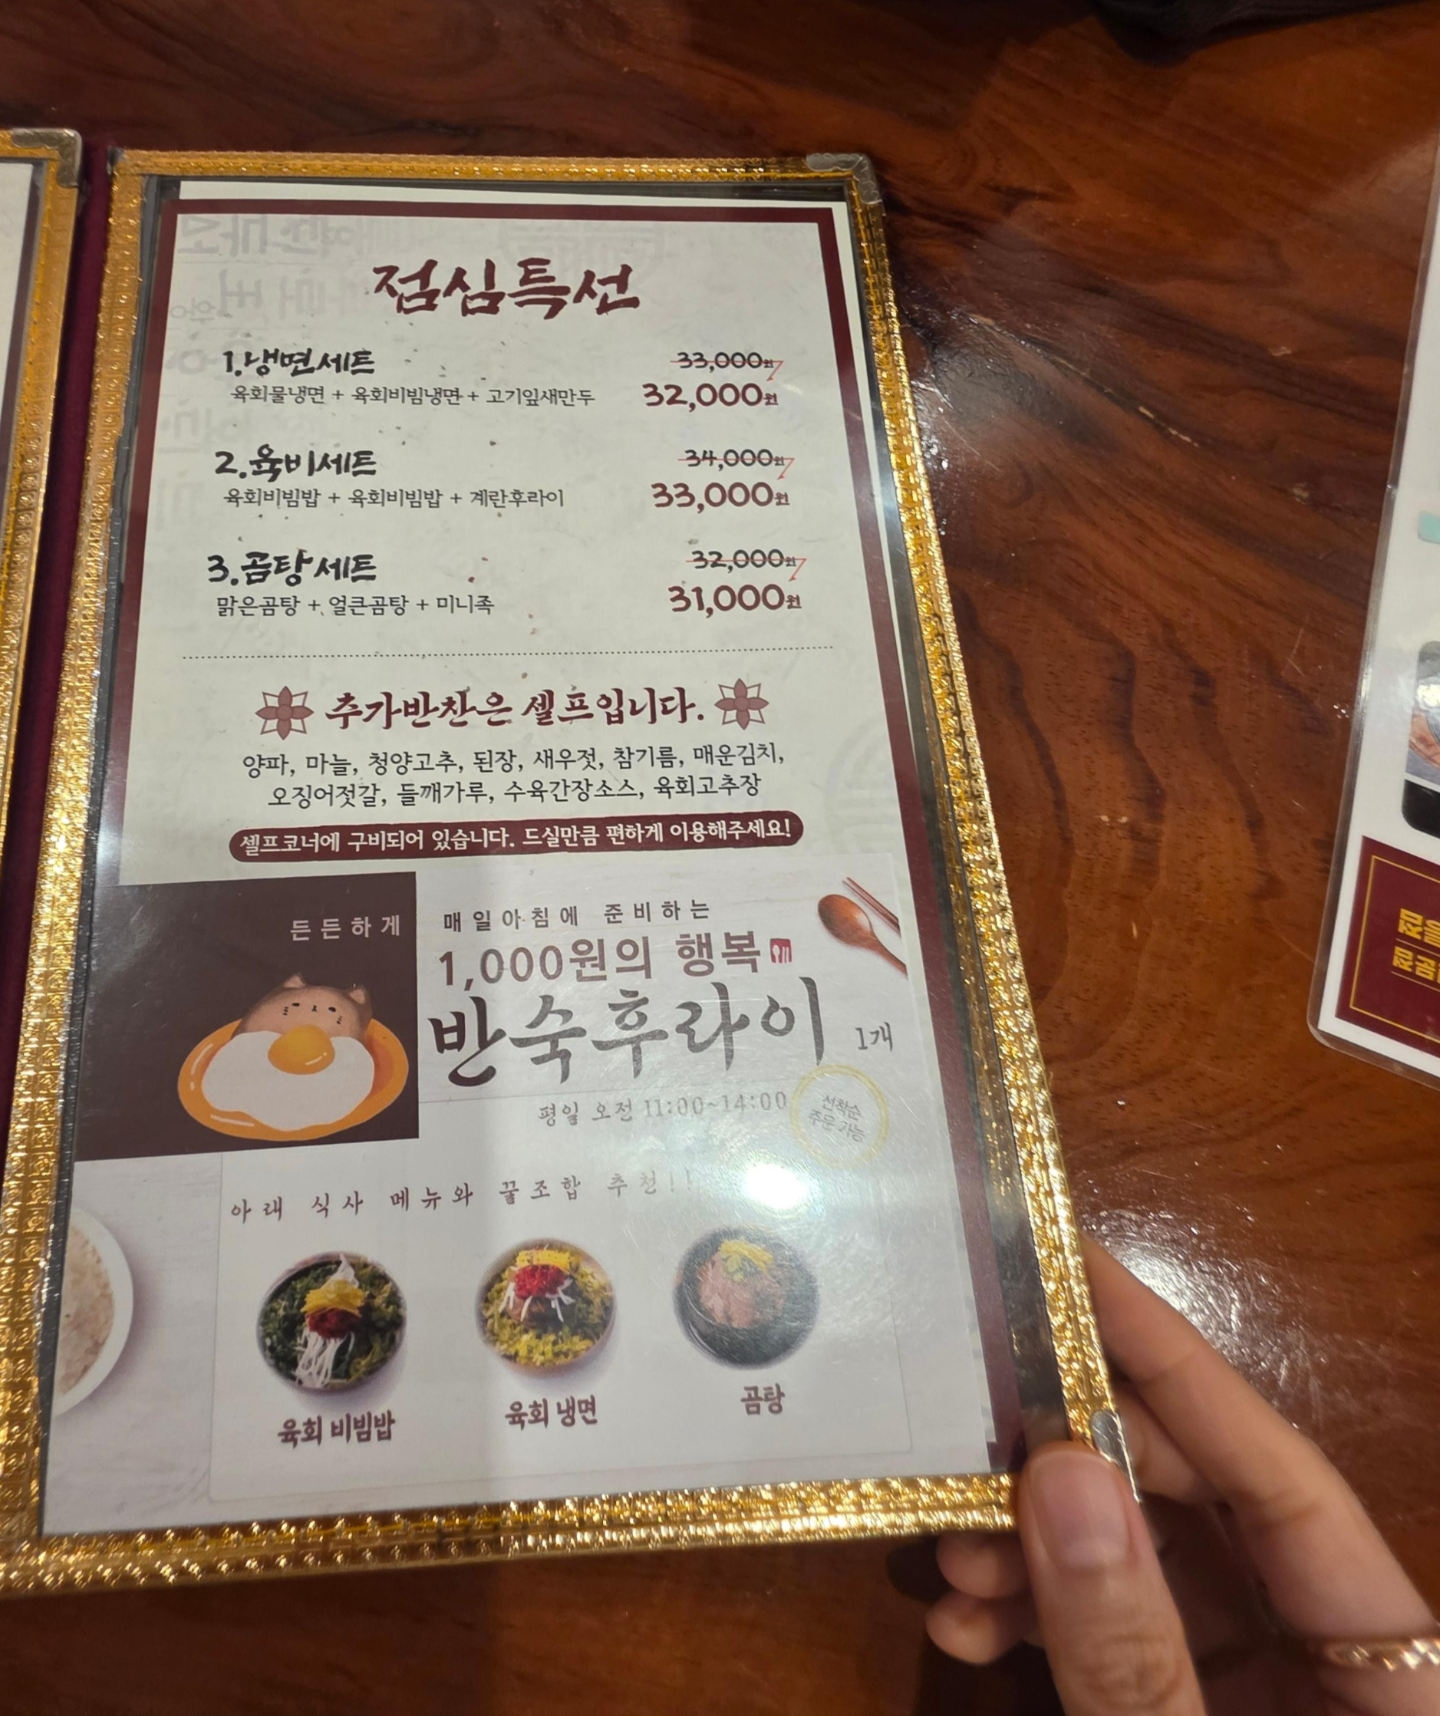 점심특선
1.냉면세트 33,000원
육회물냉면 + 육회비빔냉면 + 고기잎새만두 32,000원
2.육비세트 34,000원
육회비빔밥 + 육회비빔밥 + 계란후라이 33,000원
3.곰탕세트 32,000원
맑은곰탕 + 얼큰곰탕 + 미니족 31,000원
추가반찬은 셀프입니다.
양파, 마늘, 청양고추, 된장, 새우젓, 참기름, 매운김치,
오징어젓갈, 들깨가루, 수육간장소스, 육회고추장
셀프코너에 구비되어 있습니다. 드실만큼 편하게 이용해주세요!
든든하게
매일아침에 준비하는
1,000원의 행복
반숙후라이 1개
평일 오전 11:00~14:00
선착순
주문 가능
아래 식사 메뉴와 꿀조합 추천!!
육회 비빔밥 육회 냉면 곰탕